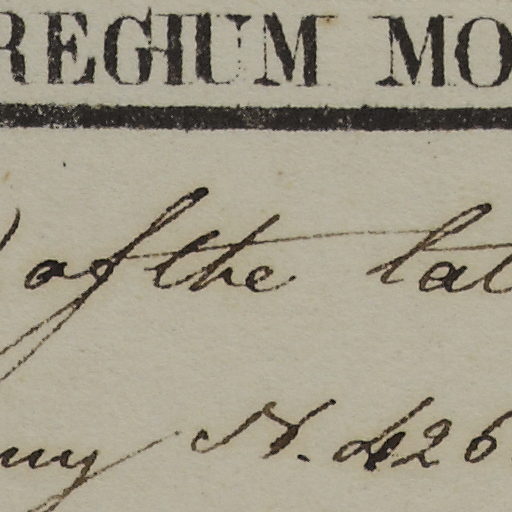 REGIUM MO
of the lat
ny N. 426